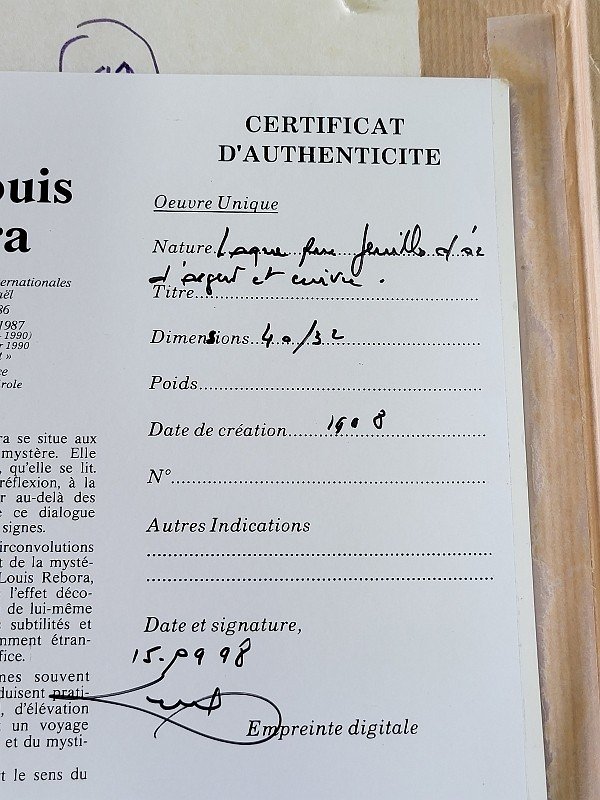 CERTIFICAT
D'AUTHENTICITE
Oeuvre Unique
Nature Laque sur feuille d'or
d'argent et cuivre .
Titre
Dimensions 40/32
Poids
Date de création
N°
Autres Indications
Date et signature,
Empreinte digitale
ouis
ra
ternationales
aël
86
1987
- 1990)
r 1990
t »
ce
role
ra se situe aux
mystère. Elle
, qu'elle se lit.
réflexion, à la
r au-delà des
e ce dialogue
signes.
irconvolutions
t de la mysté-
Louis Rebora,
l'effet déco-
de lui-même
subtilités et
mment étran-
fice.
nes souvent
duisent prati-
, d'élévation
un voyage
et du mysti-
t le sens du